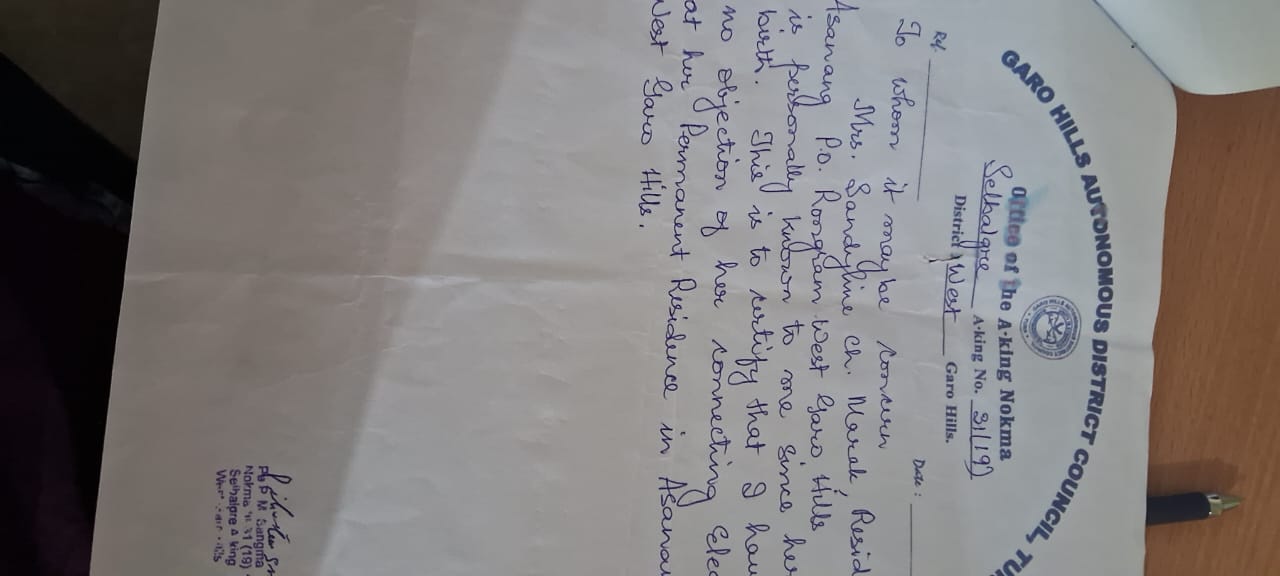 GARO HILLS AUTONOMOUS DISTRICT COUNCIL, TU
Office of the A·king Nokma
Selbalgre A·king No. 31(19)
District West Garo Hills.
Ref. Date :
To whom it maybe concern
Mrs. Sandyline Ch. Marak, Resid
Asanang P.O. Rongram West Garo Hills
is personally known to me since her
birth. This is to certify that I hav
no objection of her connecting Elec
at her Permanent Residence in Asanan
West Garo Hills.
M. Sangma
Nokma 31 (19)
Selbalgre A·king